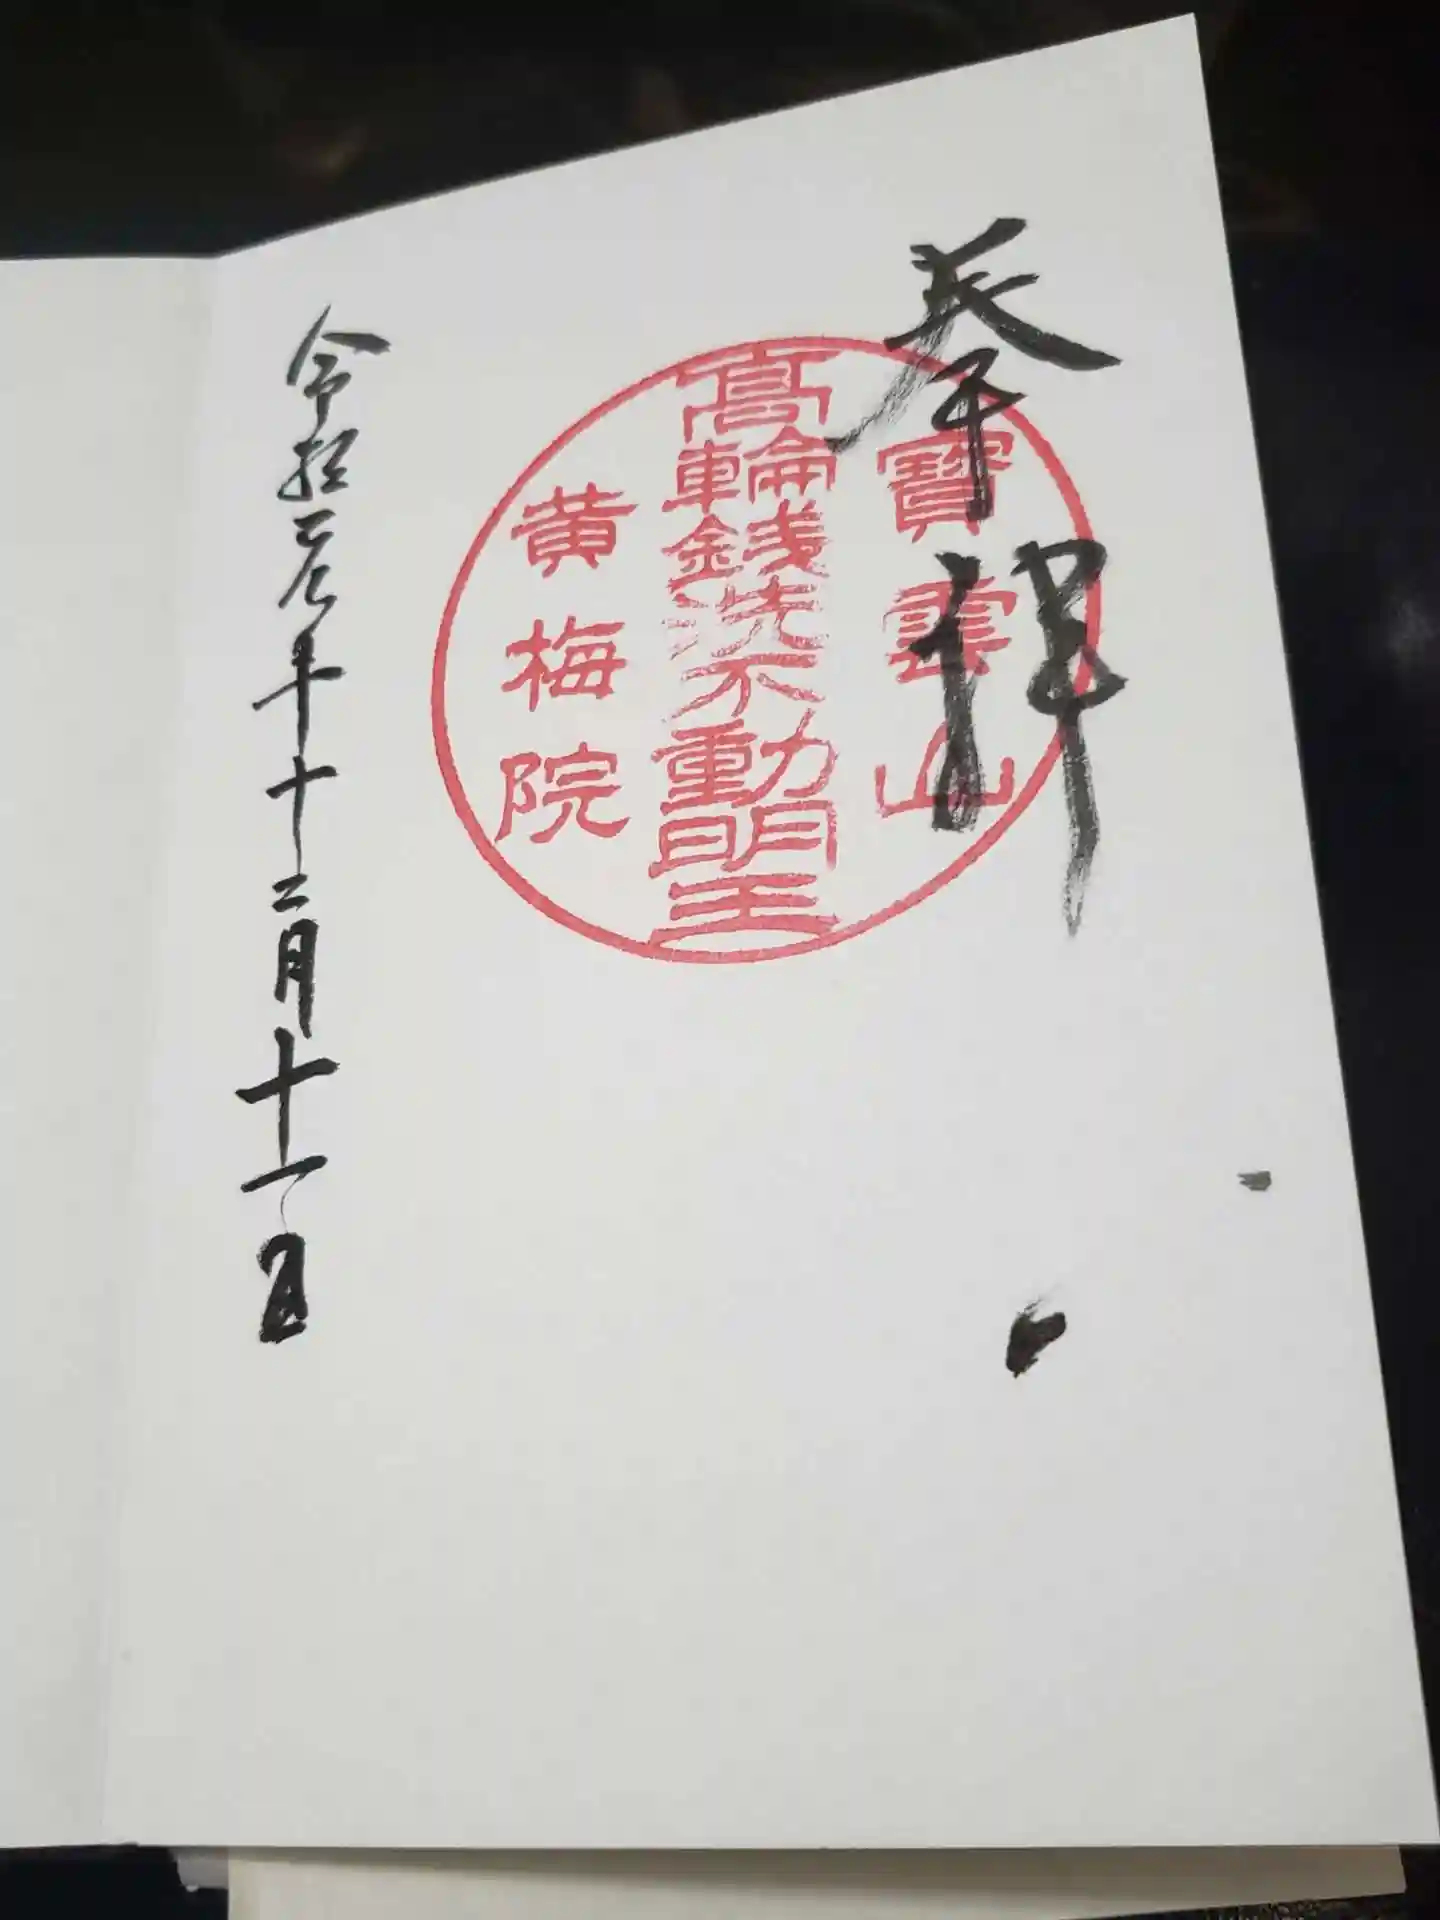 奉拝
寶雲山
高輪銭洗不動明王
黄梅院
令和元年十二月十一日